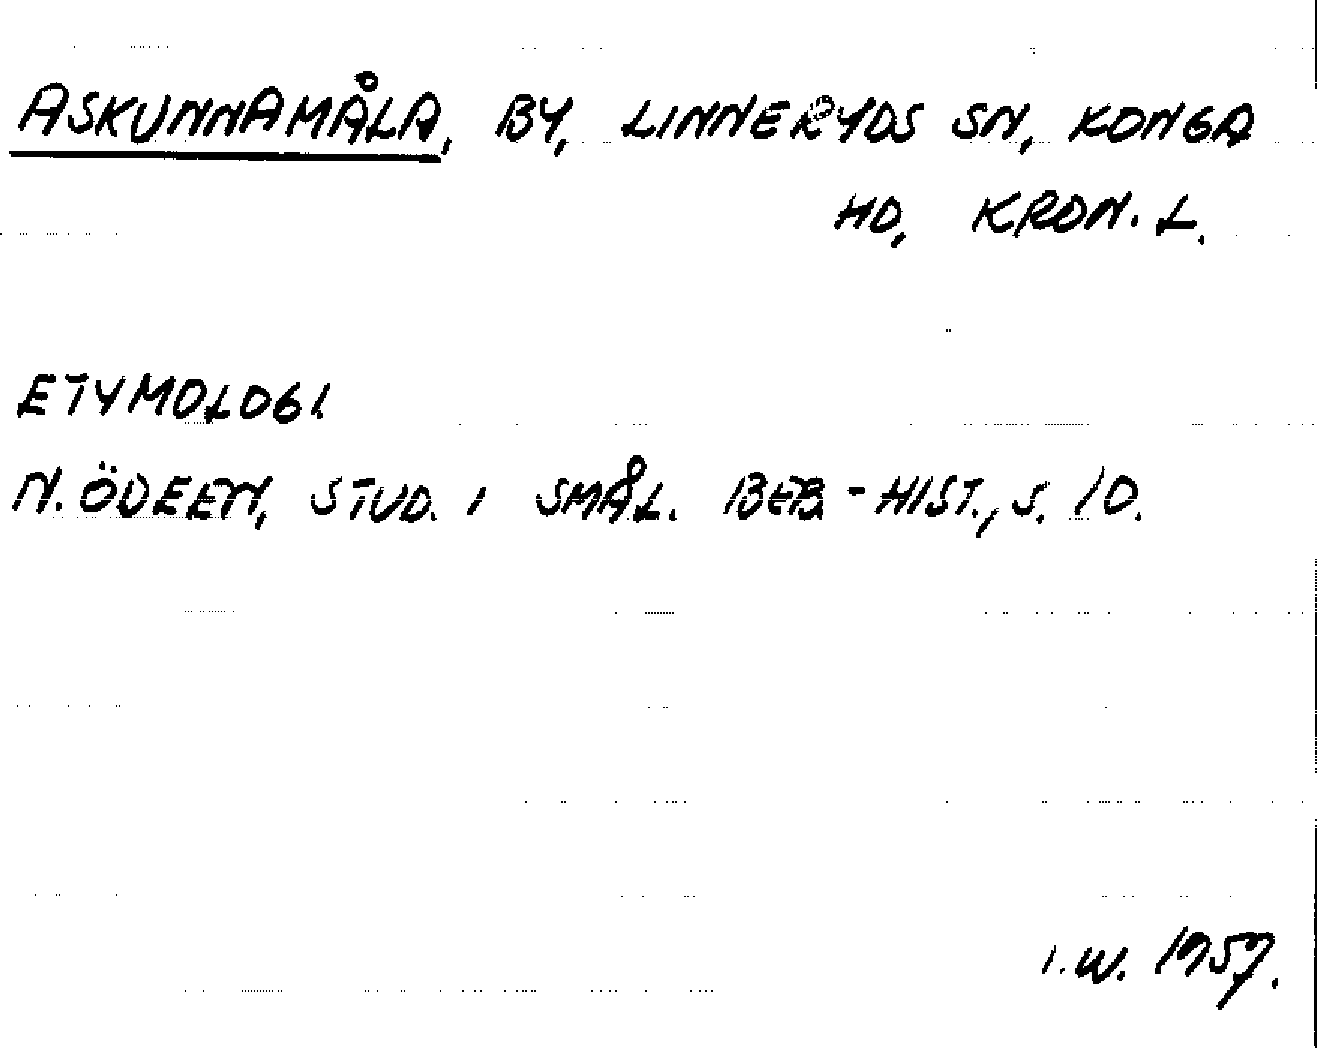 ASKUNNAMÅLA, BY, LINNERYDS SN, KONGA
HD, KRON. L.
ETYMOLOGI.
N. ÖDEEN, STUD. I SMÅL. BEB.-HIST., S. 10.
I.W. 1957.